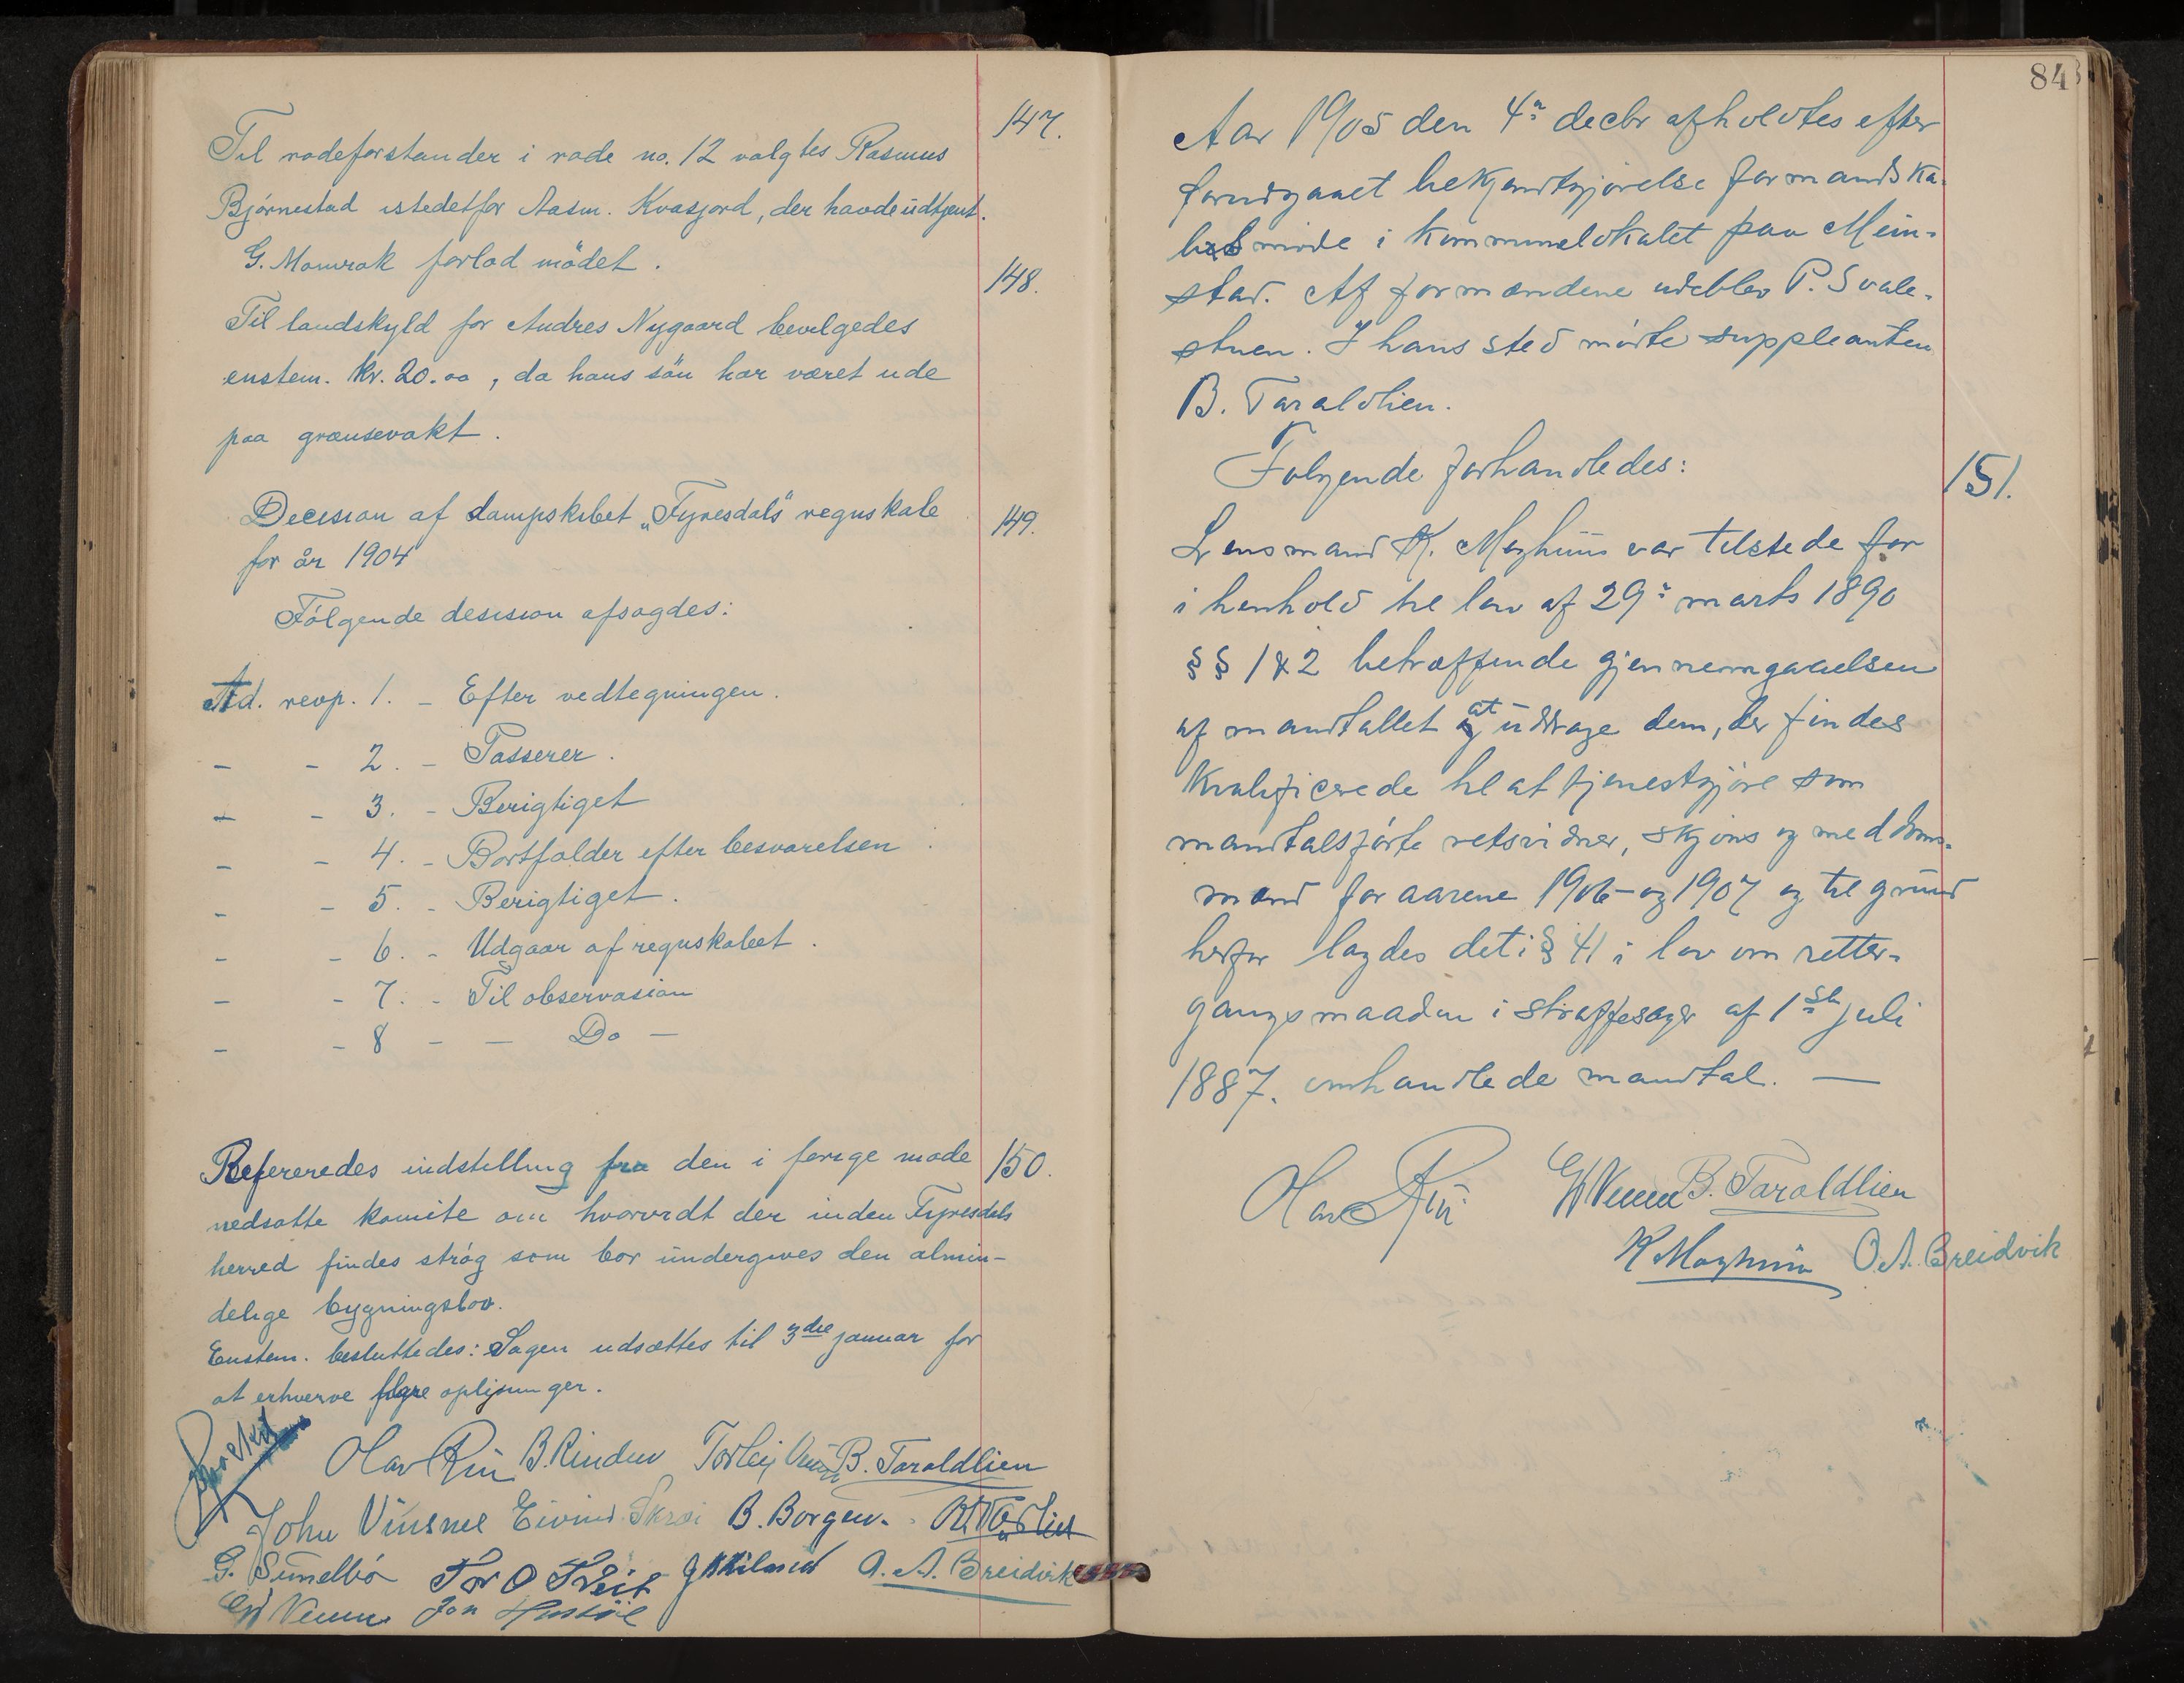 147.
Til rodeforstander i rode no. 12 valgtes Rasmus
Bjørnestad istedetfor Aasm. Kvasjord, der havde üdtjent.
G. Momrak forlod mödet.
148.
Til landskyld for Andres Nygaard bevilgedes
enstem. kr. 20.00, da hans sön har været ude
paa grænsevakt.
149.
Decision af dampskibet „Fyresdals" regnskab
for år 1904
Følgende desision afsagdes:
Ad. revp. 1. - Efter vedtegningen.
- - 2. - Passerer.
- - 3. - Berigtiget
- - 4. - Bortfalder efter besvarelsen
- - 5. - Berigtiget.
- - 6. - Udgaar af regnskabet.
- - 7. - Til observasion
- - 8 - - Do -
150.
Refereredes indstilling fra den i forige møde
nedsatte komite om hvorvidt der inden Fyresdals
herred findes strøg som bør ündergives den almin-
delige bygningslov.
Enstem. besluttedes: Sagen udsættes til 3die januar for
at erhverve flere oplysninger.
Olav Rui B. Rinden Torleiv B. Taraldlien
John Vinsnes Eivind Skræi B. Borgen.
G. Simelbö Tor O Tveit O. A. Breidvik
Jon
84
Aar 1905 den 4de decbr afholdtes efter
forudgaaet bekjendtgjørelse formandska-
bsmøde i kommunelokalet paa Mein-
stad. Af formændene udeblev P. Svale-
stuen. I hans sted mødte suppleanten
B. Taraldlien.
Følgende forhandledes:
151.
Lensmand K. Moghüs var tilstede for
i henhold til lov af 29de marts 1890
§ § 1 & 2 betræffende gjennemgaaelsen
af mandtallet at üddrage dem, der findes
kvalificerede til at tjenestgjøre som
mandtalsførte retsvidner, skjøns og meddoms-
mænd for aarene 1906 og 1907 og til gründ
herfor lagdes det i § 41 i lov om retter-
gangsmaaden i straffesager af 1ste juli
1887. omhandlede mandtal. —
Olav Rui B. Taraldlien
K Moghüs O. A. Breidvik